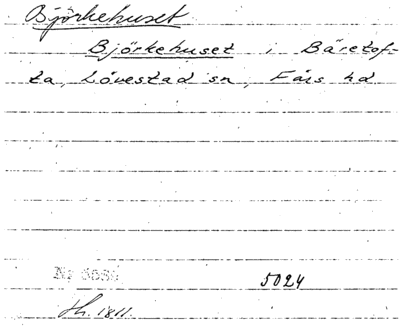 Björkehuset
Björkehuset i Bäretof-
ta, Lövestad sn, Färs hd.
5024
Hh. 1811.